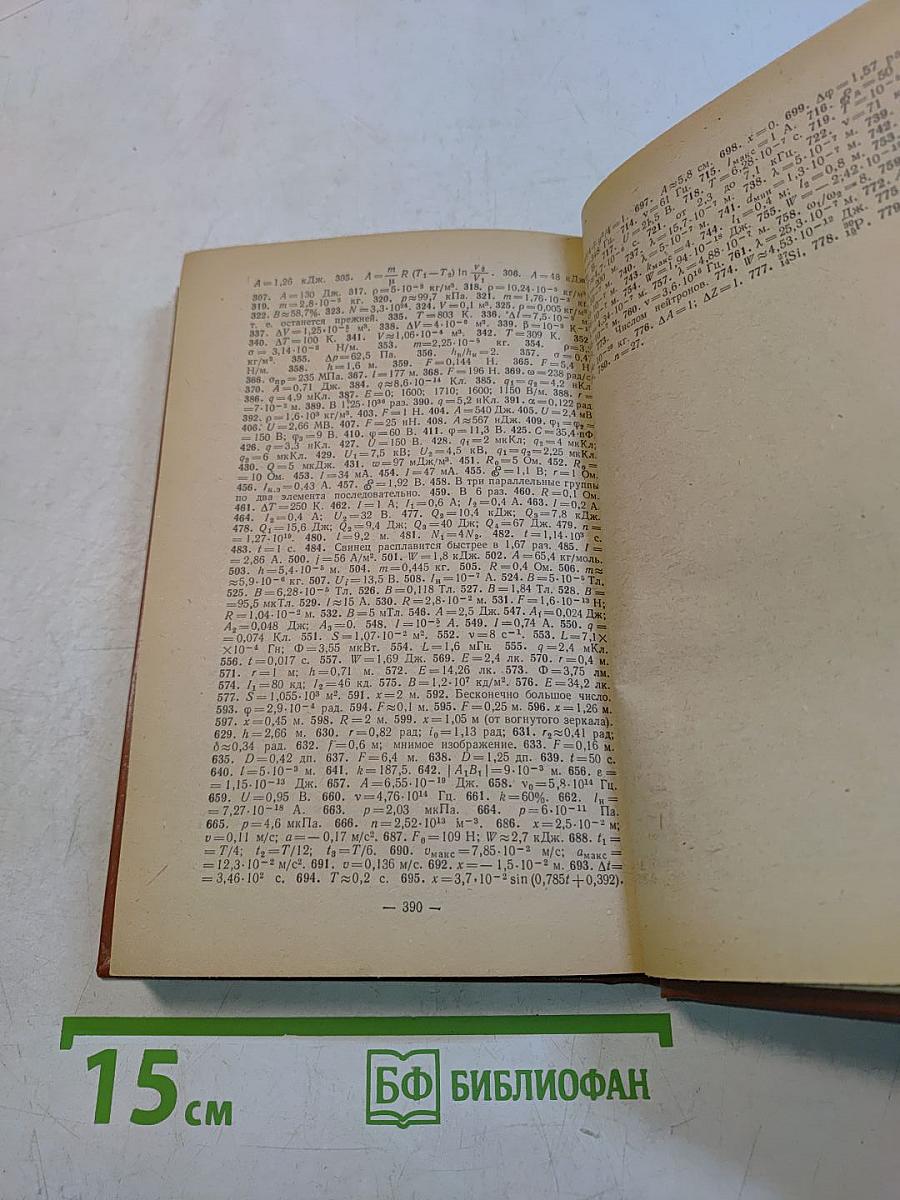 A=1,26 кДж. 305. A=m/μ R (T₁−T₂) ln V₂/V₁. 306. A=48 кДж
307. A=130 Дж. 317. ρ=5·10⁻⁵ кг/м³. 318. ρ=10,24·10⁻⁵ кг/м³
319. m=2,8·10⁻³ кг. 320. p≈99,7 кПа. 321. m=1,76·10⁻² кг.
322. B≈58,7%. 323. N=3,3·10²⁴. 324. V=0,1 м³. 325. ρ=0,005 кг/м³
т. е. останется прежней. 335. T=803 К. 336.
337. ΔV=1,25·10⁻⁵ м³. 338. ΔV=4·10⁻⁶ м³. 339.
340. ΔT=100 К. 341. V≈1,06·10⁻⁴ м³. 342. T=309 К.
σ=3,14·10⁻² Н/м. 353. m=2,25·10⁻⁵ кг. 354.
кг/м³. 355. Δp=62,5 Па. 356. 357.
Н/м. 358. h=1,6 м. 359. F=0,144 Н. 365. F=5,4 Н
366. σпр=235 МПа. 367. l=177 м. 368. F=196 Н. 369. ω=238 рад/с
370. A=0,71 Дж. 384. q≈8,6·10⁻¹⁴ Кл. 385. q₁=q₂=4,2 нКл
386. q=4,9 мКл. 387. E=0; 1600; 1710; 1600; 1150 В/м. 388. r=
=7·10⁻² м. 389. В 1,25·10³⁶ раз. 390. q=5,2 нКл. 391. α=0,122 рад
392. ρ=1,6·10³ кг/м³. 403. F=1 Н. 404. A=540 Дж. 405. U=2,4 мВ
406. U=2,66 МВ. 407. F=25 нН. 408. A≈567 нДж. 409. φ₁=φ₂=
=150 В; φ₃=9 В. 410. φ=60 В. 411. φ=11,3 В. 425. C=35,4 пФ
426. q=3,3 нКл. 427. U=150 В. 428. q₁=2 мкКл; q₂=4 мкКл;
q₃=6 мкКл. 429. U₁=7,5 кВ; U₂=4,5 кВ, q₁=q₂=2,25 мкКл.
430. Q=5 мкДж. 431. ω=97 мДж/м³. 451. R₀=5 Ом. 452. R₀=
=10 Ом. 453. I=34 мА. 454. I=47 мА. 455. ℰ=1,1 В; r=1 Ом.
456. Iк.з=0,43 А. 457. ℰ=1,92 В. 458. В три параллельные группы
по два элемента последовательно. 459. В 6 раз. 460. R=0,1 Ом.
461. ΔT=250 К. 462. I=1 А; I₁=0,6 А; I₂=0,4 А. 463. I=0,2 А.
464. I₂=0,4 А; U₂=32 В. 477. Q₂=10,4 кДж; Q₃=7,8 кДж.
478. Q₁=15,6 Дж; Q₂=9,4 Дж; Q₃=40 Дж; Q₄=67 Дж. 479. n=
=1,27·10¹⁹. 480. l=9,2 м. 481. N₁=4N₂. 482. t=1,14·10³ с.
483. t=1 с. 484. Свинец расплавится быстрее в 1,67 раз. 485. I=
=2,86 А. 500. j=56 А/м². 501. W=1,8 кДж. 502. A=65,4 кг/моль.
503. h=5,4·10⁻⁵ м. 504. m=0,445 кг. 505. R=0,4 Ом. 506. m≈
≈5,9·10⁻⁶ кг. 507. Ui=13,5 В. 508. Iн=10⁻⁷ А. 524. B=5·10⁻⁵ Тл.
525. B=6,28·10⁻⁵ Тл. 526. B=0,118 Тл. 527. B=1,84 Тл. 528. B=
=95,5 мкТл. 529. I≈15 А. 530. R=2,8·10⁻² м. 531. F=1,6·10⁻¹³ Н;
R=1,04·10⁻² м. 532. B=5 мТл. 546. A=2,5 Дж. 547. A₁=0,024 Дж;
A₂=0,048 Дж; A₃=0. 548. I=10⁻⁵ А. 549. I=0,74 А. 550. q=
=0,074 Кл. 551. S=1,07·10⁻² м². 552. ν=8 с⁻¹. 553. L=7,1×
×10⁻⁴ Гн; Ф=3,55 мкВт. 554. L=1,6 мГн. 555. q=2,4 мКл.
556. t=0,017 с. 557. W=1,69 Дж. 569. E=2,4 лк. 570. r=0,4 м.
571. r=1 м; h=0,71 м. 572. E=14,26 лк. 573. Ф=3,75 лм.
574. I₁=80 кд; I₂=46 кд. 575. B=1,2·10⁷ кд/м². 576. E=34,2 лк.
577. S=1,055·10³ м². 591. x=2 м. 592. Бесконечно большое число.
593. φ=2,9·10⁻⁴ рад. 594. F≈0,1 м. 595. F=0,25 м. 596. x=1,26 м.
597. x=0,45 м. 598. R=2 м. 599. x=1,05 м (от вогнутого зеркала).
629. h=2,66 м. 630. r=0,82 рад; i₀=1,13 рад; 631. r₂≈0,41 рад;
δ≈0,34 рад. 632. f=0,6 м; мнимое изображение. 633. F=0,16 м.
635. D=0,42 дп. 637. F=6,4 м. 638. D=1,25 дп. 639. t=50 с.
640. l=5·10⁻³ м. 641. k=187,5. 642. |A₁B₁|=9·10⁻³ м. 656. ε=
=1,15·10⁻¹³ Дж. 657. A=6,55·10⁻¹⁹ Дж. 658. ν₀=5,8·10¹⁴ Гц.
659. U=0,95 В. 660. ν=4,76·10¹⁴ Гц. 661. k=60%. 662. Iн=
=7,27·10⁻¹⁸ А. 663. p=2,03 мкПа. 664. p=6·10⁻¹¹ Па.
665. p=4,6 мкПа. 666. n=2,52·10¹³ м⁻³. 686. x=2,5·10⁻² м;
υ=0,11 м/с; a=−0,17 м/с². 687. F₀=109 Н; W≈2,7 кДж. 688. t₁=
=T/4; t₂=T/12; t₃=T/6. 690. υмакс=7,85·10⁻² м/с; aмакс=
=12,3·10⁻² м/с². 691. υ=0,136 м/с. 692. x=−1,5·10⁻² м. 693. Δt=
=3,46·10² с. 694. T≈0,2 с. 695. x=3,7·10⁻² sin (0,785t+0,392).
— 390 —
697. A≈5,8 см. 698. x=0. 699. Δφ=1,57
714. ν=61 Гц. 715. Iмакс=1 А. 716.
U=21,5 В. 718. T=6,28·10⁻⁷ с. 719.
721. от 2,3 до 7,1 кГц. 722. ν=71
737. λ=15,7·10⁻⁷ м. 738. λ=5·10⁻⁷ м. 739.
740. λ=5·10⁻⁷ м. 741. dмин=1,3·10⁻⁷ м. 742.
743. kмакс=4. 744. l₁=0,4 м; l₂=0,8 м. 753.
754. W=1,94·10⁻¹⁸ Дж. 755. W=−2,42·10⁻¹⁹
757. λ=4,88·10⁻⁷ м. 758. ω₁/ω₂=8. 759.
760. ν=3,6·10¹⁶ Гц. 761. λ=25,3·10⁻¹² м. 772.
773. Числом нейтронов. 774. W≈4,53·10⁻¹² Дж. 775.
кг. 776. ΔA=1; ΔZ=1. 777. ²⁷₁₄Si. 778. ³⁰₁₅P. 779
780. n=27.
15 см
БФ БИБЛИОФАН